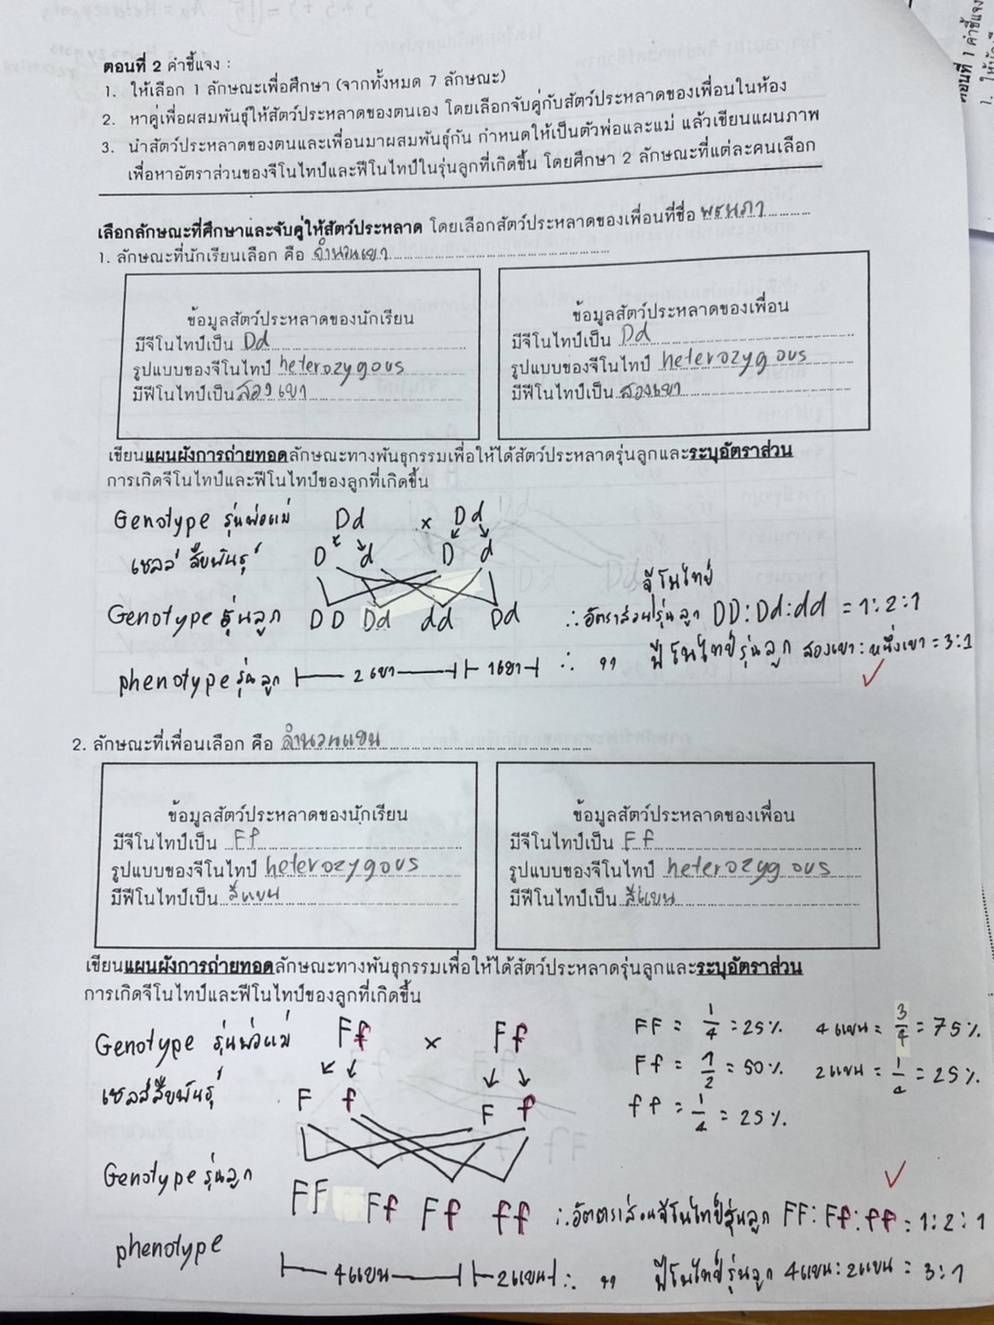 ตอนที่ 2 คำชี้แจง :
1. ให้เลือก 1 ลักษณะเพื่อศึกษา (จากทั้งหมด 7 ลักษณะ)
2. หาคู่เพื่อผสมพันธุ์ให้สัตว์ประหลาดของตนเอง โดยเลือกจับคู่กับสัตว์ประหลาดของเพื่อนในห้อง
3. นำสัตว์ประหลาดของตนและเพื่อนมาผสมพันธุ์กัน กำหนดให้เป็นตัวพ่อและแม่ แล้วเขียนแผนภาพ
เพื่อหาอัตราส่วนของจีโนไทป์และฟีโนไทป์ในรุ่นลูกที่เกิดขึ้น โดยศึกษา 2 ลักษณะที่แต่ละคนเลือก
เลือกลักษณะที่ศึกษาและจับคู่ให้สัตว์ประหลาด โดยเลือกสัตว์ประหลาดของเพื่อนที่ชื่อ
1. ลักษณะที่นักเรียนเลือก คือ จำนวนเขา
ข้อมูลสัตว์ประหลาดของนักเรียน
มีจีโนไทป์เป็น Dd
รูปแบบของจีโนไทป์ heterozygous
มีฟีโนไทป์เป็น สองเขา
ข้อมูลสัตว์ประหลาดของเพื่อน
มีจีโนไทป์เป็น Dd
รูปแบบของจีโนไทป์ heterozygous
มีฟีโนไทป์เป็น สองเขา
เขียนแผนผังการถ่ายทอดลักษณะทางพันธุกรรมเพื่อให้ได้สัตว์ประหลาดรุ่นลูกและระบุอัตราส่วน
การเกิดจีโนไทป์และฟีโนไทป์ของลูกที่เกิดขึ้น
Genotype รุ่นพ่อแม่ Dd x Dd
เซลล์สืบพันธุ์ D d D d
จีโนไทป์
Genotype รุ่นลูก DD Dd dd Dd ∴ อัตราส่วนรุ่นลูก DD:Dd:dd = 1:2:1
phenotype รุ่นลูก 2 เขา 1 เขา ∴ " ฟีโนไทป์รุ่นลูก สองเขา : หนึ่งเขา = 3:1
2. ลักษณะที่เพื่อนเลือก คือ จำนวนแขน
ข้อมูลสัตว์ประหลาดของนักเรียน
มีจีโนไทป์เป็น Ff
รูปแบบของจีโนไทป์ heterozygous
มีฟีโนไทป์เป็น สี่แขน
ข้อมูลสัตว์ประหลาดของเพื่อน
มีจีโนไทป์เป็น Ff
รูปแบบของจีโนไทป์ heterozygous
มีฟีโนไทป์เป็น สี่แขน
เขียนแผนผังการถ่ายทอดลักษณะทางพันธุกรรมเพื่อให้ได้สัตว์ประหลาดรุ่นลูกและระบุอัตราส่วน
การเกิดจีโนไทป์และฟีโนไทป์ของลูกที่เกิดขึ้น
Genotype รุ่นพ่อแม่ Ff x Ff
เซลล์สืบพันธุ์ F f F f
FF = 1/4 = 25% 4 แขน = 3/4 = 75%
Ff = 1/2 = 50% 2 แขน = 1/4 = 25%
ff = 1/4 = 25%
Genotype รุ่นลูก
FF Ff Ff ff ∴ อัตราส่วนจีโนไทป์รุ่นลูก FF:Ff:ff = 1:2:1
phenotype
4 แขน 2 แขน ∴ " ฟีโนไทป์รุ่นลูก 4 แขน : 2 แขน = 3:1